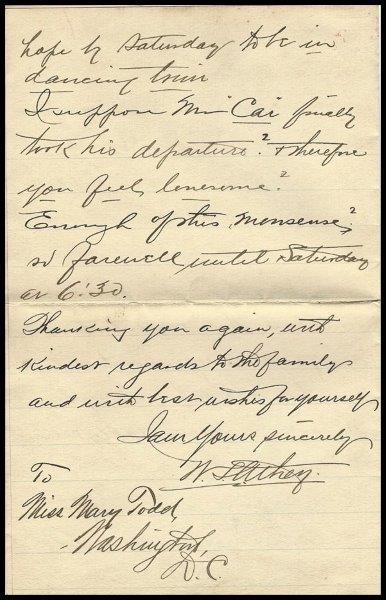 hope by Saturday to be in
dancing trim
I suppose Mr Car finally
took his departure? & therefore
you feel lonesome?
Enough of this nonsense,
so farewell until Saturday
at 6:30.
Thanking you again, with
kindest regards to the family
and with best wishes for yourself
I am Yours sincerely
W.
To
Miss Mary Todd,
Washington,
D.C.